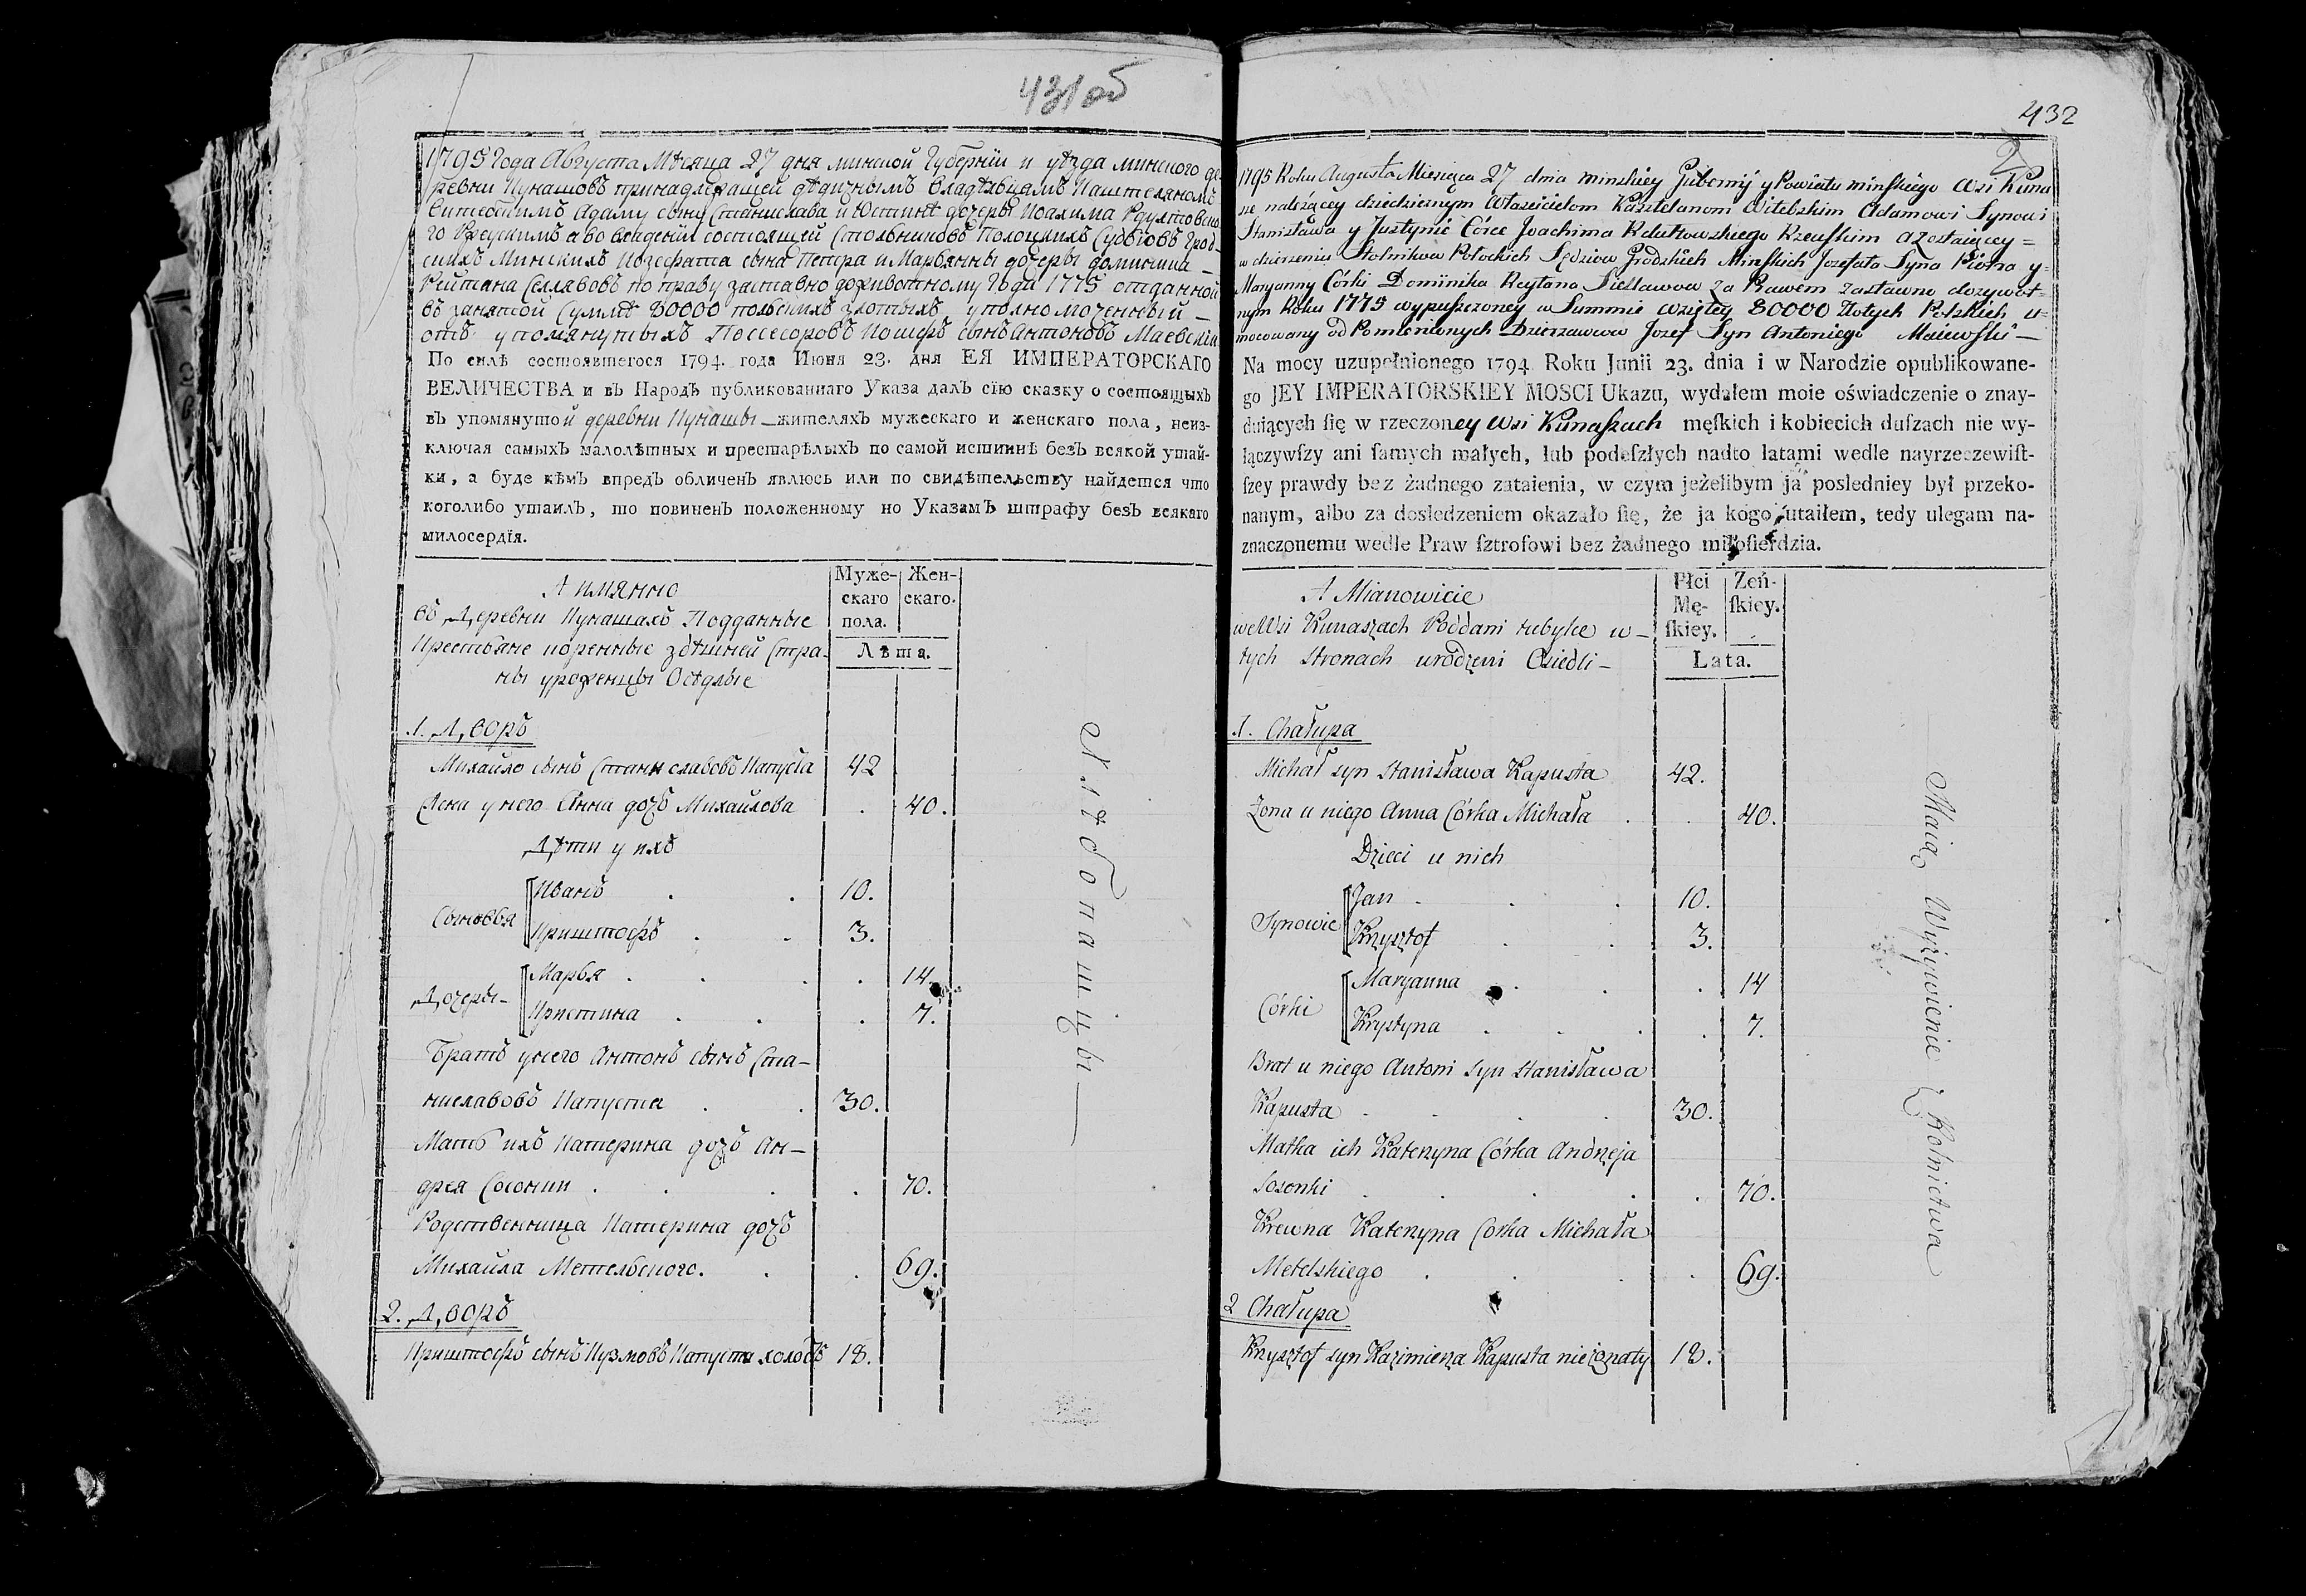 431 об
1795 Года Августа Мѣсяца 27 дня минской Губернїи и уѣзда минского де-
ревни Кунашовъ принадлежащей дѣдичнымъ владѣльцамъ Каштеляномъ
Витебскимъ Адаму сыну Станислава и Юстинѣ дочеры Иоахима Рдултовско
го Ржеускимъ а во владенїи состоящей Стольниковъ Полоцкихъ Судьïовъ Грод-
скихъ Минскихъ Иозефата сына Петра и Марьянны дочеры доминика
Рейтана Селлявовъ по праву заставно доживотному Года 1775 отданной
въ занятой суммѣ 80000 польскихъ злотыхъ уполномоченный
отъ упомянутыхъ Поссесоровъ Иозефъ сынъ Антоновъ Маевскїи
По силѣ состоявшегося 1794. года Июня 23. дня ЕЯ ИМПЕРАТОРСКАГО
ВЕЛИЧЕСТВА и въ Народъ публикованнаго Указа далъ сїю сказку о состоящыхъ
въ упомянутой деревни Кунашы жителяхъ мужескаго и женскаго пола, неиз-
ключая самыхъ малолѣтныхъ и престарѣлыхъ по самой истиннѣ безъ всякой утай-
ки, а буде кѣмъ впредь обличенъ явлюсь или по свидѣтельству найдется что
коголибо утаилъ, то повиненъ положенному но Указамъ штрафу безъ всякаго
милосердїя.
А имянно
въ Деревни Кунашахъ Подданные
Крестьяне коренные здѣшней Стра-
ны уроженцы Осѣдлые
Муже-
скаго
пола.
Жен-
скаго.
Лѣта.
1. Дворъ
Михайло сынъ Станиславовъ Капуста 42
Жена у него Анна дочъ Михайлова . 40.
Дѣти у ихъ
Сыновья
Иванъ . . 10.
Криштофъ . . 3.
Дочеры
Марья . . . 14.
Кристина . . . 7.
Братъ у него Антонъ сынъ Ста-
ниславовъ Капуста . . 30.
Мать ихъ Катерина дочъ Ан-
дрея Сосонки . . . . 70.
Родственница Катерина дочъ
Михайла Метельского. . . 69.
2. Дворъ
Криштофъ сынъ Кузмовъ Капуста холостъ 18.
Хлѣбопашцы
432
2
1795 Roku Augusta Miesiąca 27 dnia minskiey Gubernij y Powiatu minſkiego wsi Kuna
sz należącey dziedzicznym Właścicielom Kasztelanom Witebskim Adamowi Synowi
Stanisława y Justynie Córce Joachima Rdułtowskiego Rzeuſkim a zostaiącey =
w dzierżeniu Stolnikow Połockich Sędziow Grodzkich Minſkich Jozefata Syna Piotra y=
Maryanny Córki Dominika Reytana Siellawow za Prawem zastawno dożywot=
nym Roku 1775 wypuszczoney w Summie wziętey 80000 Złotych Polskich u=
mocowany od Pomienionych Dzierzawcow Jozef Syn Antoniego Maiewſki
Na mocy uzupełnionego 1794 Roku Junii 23. dnia i w Narodzie opublikowane-
go JEY IMPERATORSKIEY MOSCI Ukazu, wydałem moie oświadczenie o znay-
duiących ſię w rzeczoney wsi Kunaſzach męſkich i kobiecich duſzach nie wy-
łączywſzy ani ſamych małych, lub podeſzłych nadto latami wedle nayrzeczewiſt-
ſzey prawdy bez żadnego zataienia, w czym jeżelibym ja posledniey był przeko-
nanym, albo za dosledzeniem okazało ſię, że ja kogo utaiłem, tedy ulegam na-
znaczonemu wedle Praw ſztrofowi bez żadnego miłoſierdzia.
A Mianowicie
we Wsi Kunaszach Poddani tubylce w
tych stronach urodzeni Osiedli
Płci
Mę-
ſkiey.
Żeń-
ſkiey.
Lata.
1. Chałupa
Michał syn Stanisława Kapusta 42.
Żona u niego Anna Córka Michała . . 40.
Dzieci u nich
Synowie
Jan . . . 10.
Krzysztof . . 3.
Córki
Maryanna . . . 14
Krystyna . . . . 7.
Brat u niego Antoni syn Stanisława
Kapusta . . . . 30.
Matka ich Katerzyna Córka Andrzeja
Sosonki . . . . . 70.
Krewna Katerzyna Corka Michała
Metelskiego . . . . 69.
2 Chałupa
Krzysztof syn Kazimierza Kapusta nieżonaty 18.
Maią Wyżywienie z Rolnictwa